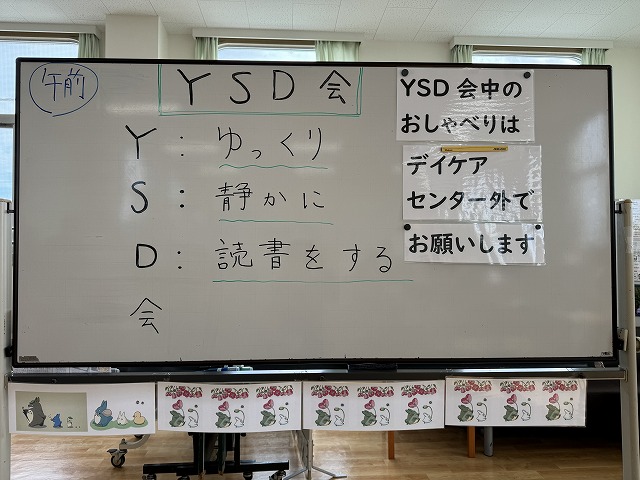 午前
YSD会
Y：ゆっくり
S：静かに
D：読書をする
会
YSD会中の
おしゃべりは
デイケア
センター外で
お願いします